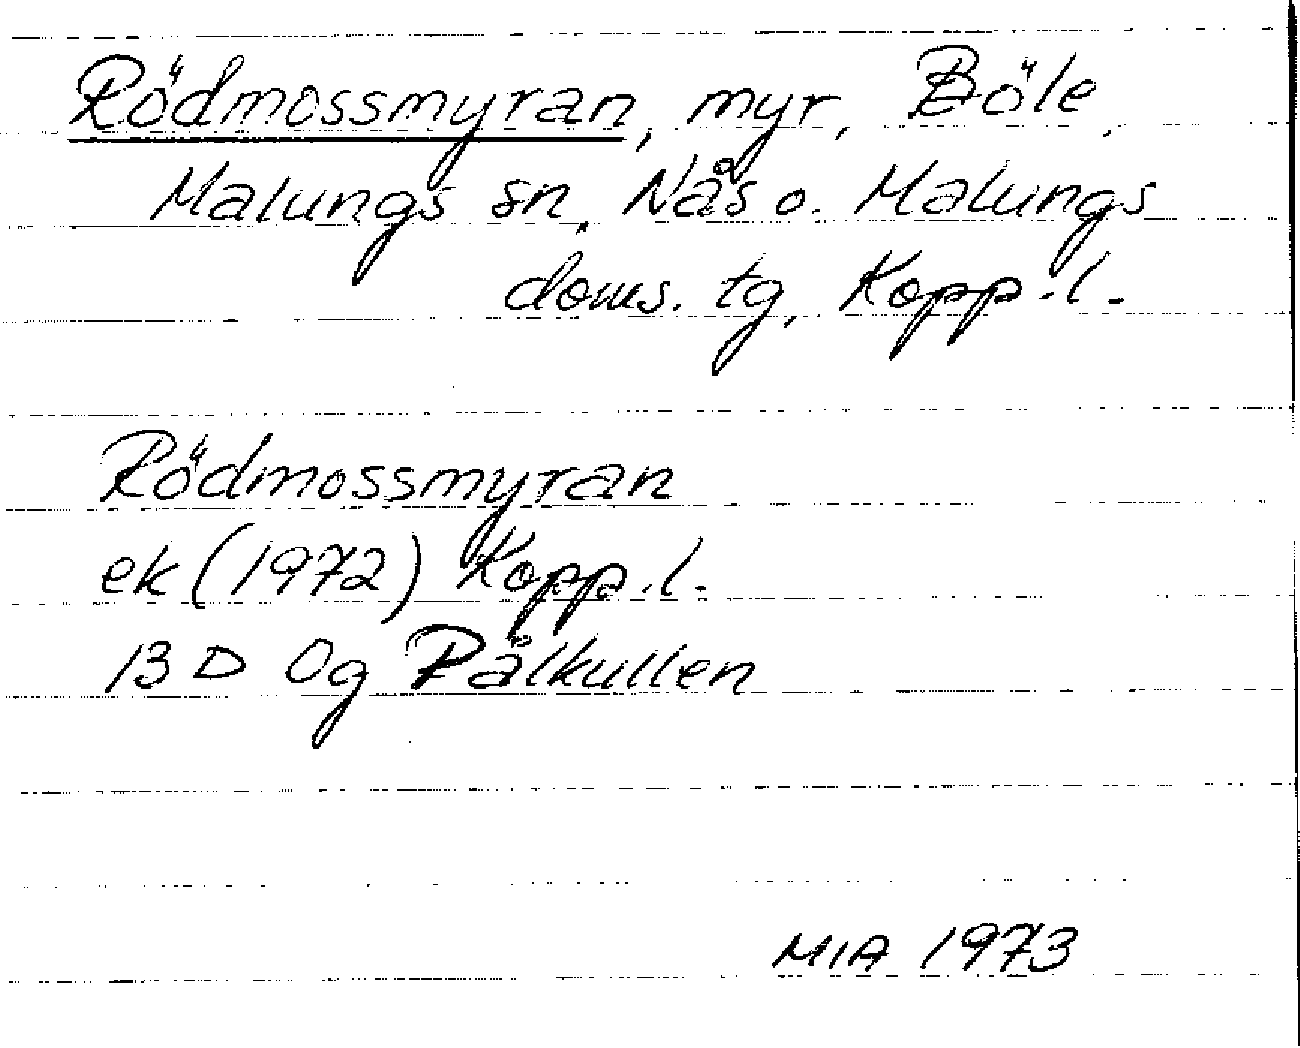 Rödmossmyran, myr, Böle,
Malungs sn, Nås o. Malungs
doms. tg, Kopp.l.
Rödmossmyran
ek (1972) Kopp.l.
13 D 0g Pålkullen
MIA 1973